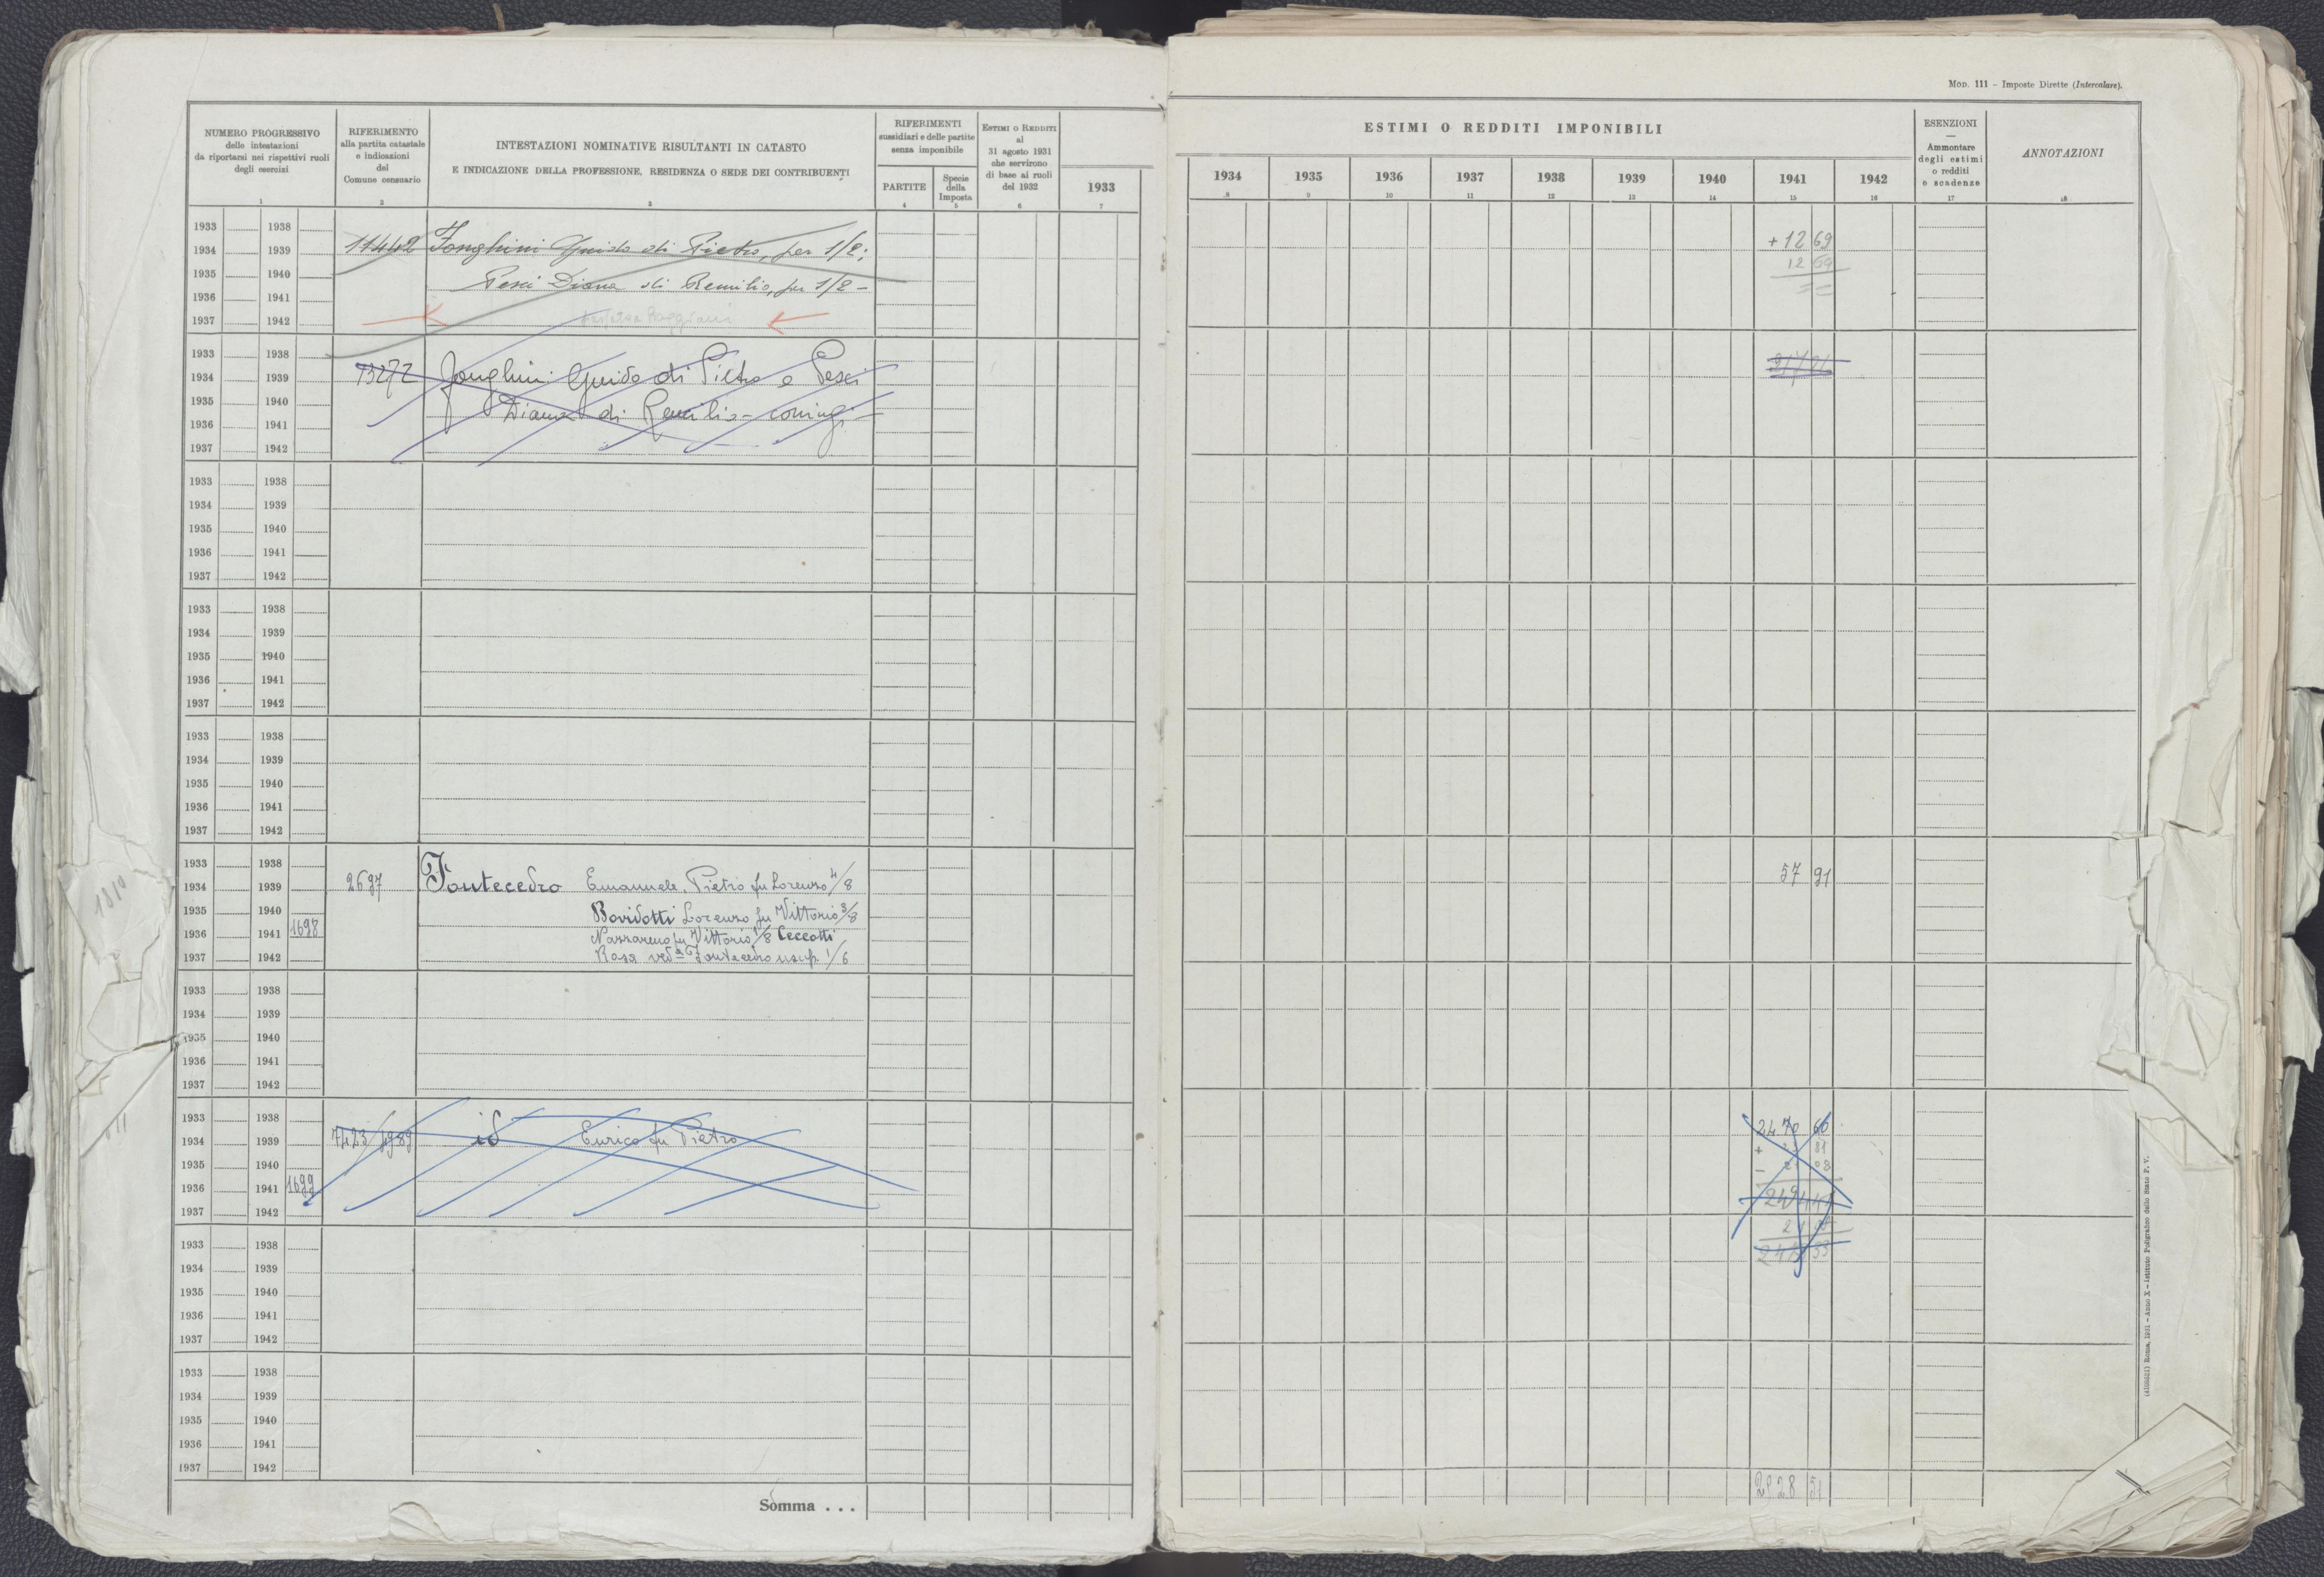 Mod. 111 - Imposte Dirette (Intercalare).
NUMERO PROGRESSIVO
delle intestazioni
da riportarsi nei rispettivi ruoli
degli esercizi
1
RIFERIMENTO
alla partita catastale
e indicazioni
del
Comune censuario
2
INTESTAZIONI NOMINATIVE RISULTANTI IN CATASTO
E INDICAZIONE DELLA PROFESSIONE, RESIDENZA O SEDE DEI CONTRIBUENTI
3
RIFERIMENTI
sussidiari e delle partite
senza imponibile
PARTITE
4
Specie
della
Imposta
5
ESTIMI O REDDITI
al
31 agosto 1931
che servirono
di base ai ruoli
del 1932
6
1933
7
ESTIMI O REDDITI IMPONIBILI
1934 1935 1936 1937 1938 1939 1940 1941 1942
8 9 10 11 12 13 14 15 16
ESENZIONI
—
Ammontare
degli estimi
o redditi
e scadenze
17
ANNOTAZIONI
18
1933 1938
1934 1939 11442 Fonghini Guido di Pietro, per 1/2; + 12 69
1935 1940 Pesci Diana di Remilio, per 1/2 - 12 69
1936 1941
1937 1942
1933 1938
1934 1939 13272 Fonghini Guido di Pietro e Pesci
1935 1940 Diana di Remilio - coniugi
1936 1941
1937 1942
1933 1938
1934 1939
1935 1940
1936 1941
1937 1942
1933 1938
1934 1939
1935 1940
1936 1941
1937 1942
1933 1938
1934 1939
1935 1940
1936 1941
1937 1942
1933 1938
1934 1939 2697 Fontecedro Emanuele, Pietro fu Lorenzo 4/8 57 91
1935 1940 Bovidotti Lorenzo fu Vittorio 3/8
1936 1941 1698 Nazzareno fu Vittorio 1/8 Ceccotti
1937 1942 Rosa ved.a Fontecedro usuf. 1/6
1933 1938
1934 1939
1935 1940
1936 1941
1937 1942
1933 1938
1934 1939 7423/4989 id Enrico fu Pietro 2470 60
1935 1940
1936 1941 1699
1937 1942
1933 1938
1934 1939
1935 1940
1936 1941
1937 1942
1933 1938
1934 1939
1935 1940
1936 1941
1937 1942
Somma . . . 2928 51
(4109521) Roma, 1931 - Anno X - Istituto Poligrafico dello Stato P. V.
1810